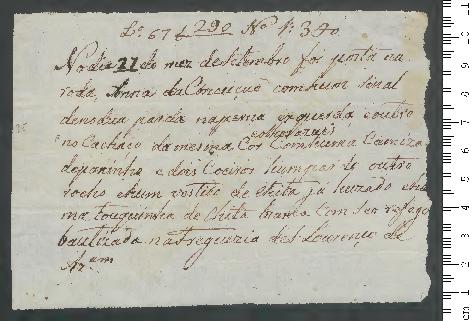 Lº 67 f 290 Nº 1:340
No dia 21 do mez de Setembro foi posta na
roda, Anna da Conceição com hum sinal
denodoa parda na perna esquerda e outro
no Cachaço da mesma Cor Com huma Camiza
de paninho e dois Coeiros hum pardo outro
rocho e hum vestido de chita já huzado e hu
ma touquinha de Chita branca com seu refego
bautizada na freguezia de S Lourenço de
Az.am
cm 1 2 3 4 5 6 7 8 9 10 11 12 13